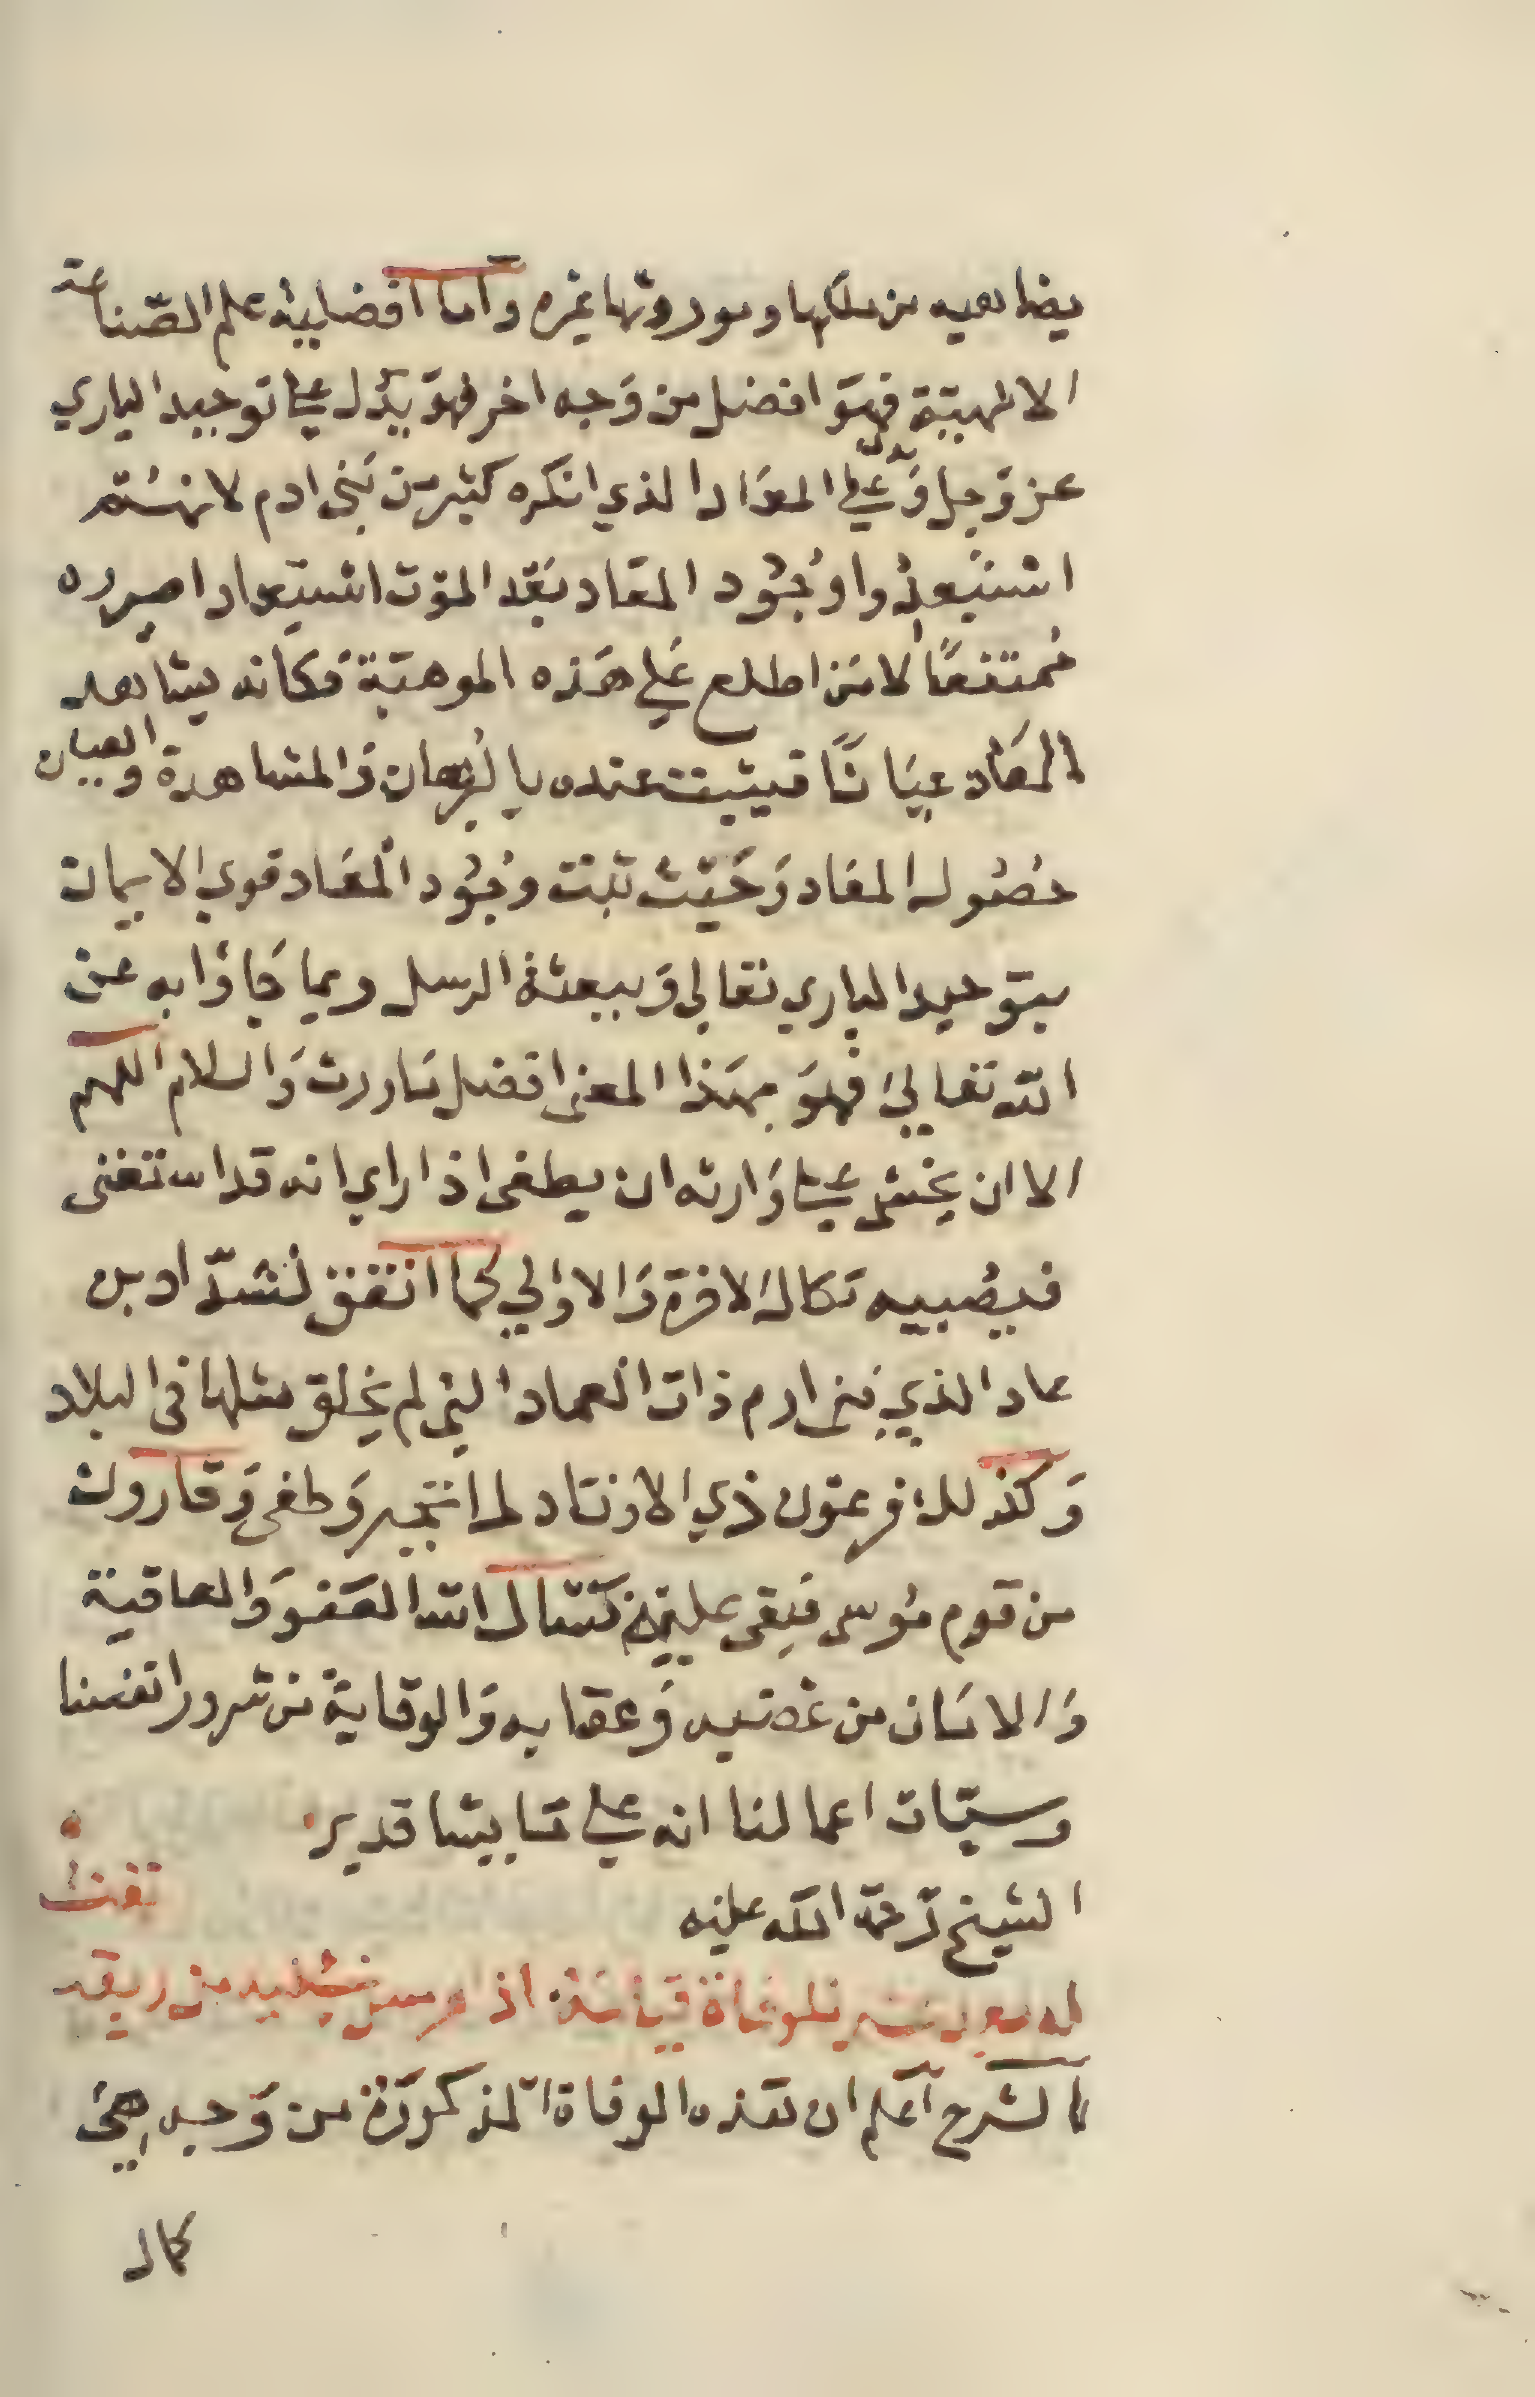 يضاهيه من ملكها ويورثها غيره وأما افضلية علم الصّناعة
الالهيّة فهوَ افضل من وَجه اخر فهوَ يدُل علي توحيد الباري
عز وَجل وَيدل علي المعَاد الذي انكره كثير من بَني ادم لانهُم
استبعدُوا وُجُود المعَاد بَعْد الموَت استبعادا صيره
مُمتنعًا لامَن اطلع عَلي هَذه الموهبَة فكانه يشاهد
المعَاد عيَانًا فيثبت عنده بالبُرهان وَالمشاهدة والعيان
حصُول المعَاد وَحَيْث ثبت وُجُود المعَاد قوي الايمان
بتوحيد الباري تعالي وَببعثة الرسل وبما جَاؤا به عن
الله تعَالي فهوَ بهَذا المعني افضل مَا ورث وَالسلام اللهم
الا ان يخشي علي وَارثه ان يطغي اذا راي انه قد استغني
فيصُيبه نكال الاخرة وَالاولي كما اتفق لشدّاد بن
عاد الذي بَني ارم ذات العماد التي لم يخلق مثلها في البلاد
وَكذلك فرعوَن ذي الاوتاد لما تجبر وَطغي وَقارون
من قوم مُوسي فبغي عليهم فنسال الله العَفو وَالعافية
وَالامَان من غضبه وَعقابه وَالوقاية من شرور انفسنا
وسيّات اعمالنا انه علي مَا يشا قدير
الشيخ رَحمَة الله عليه
من ريقه
الشرح اعلم ان هَذه الوفاة المذكورَة من وَجه هي
كمال